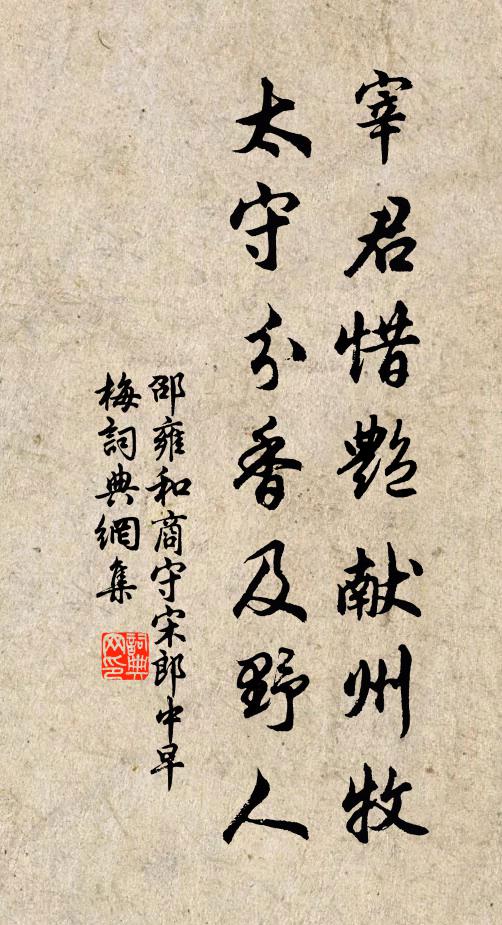 宰君惜艷献州牧
太守分香及野人
邵雍和商守宋郎中早
梅詞典網集
詞典網印